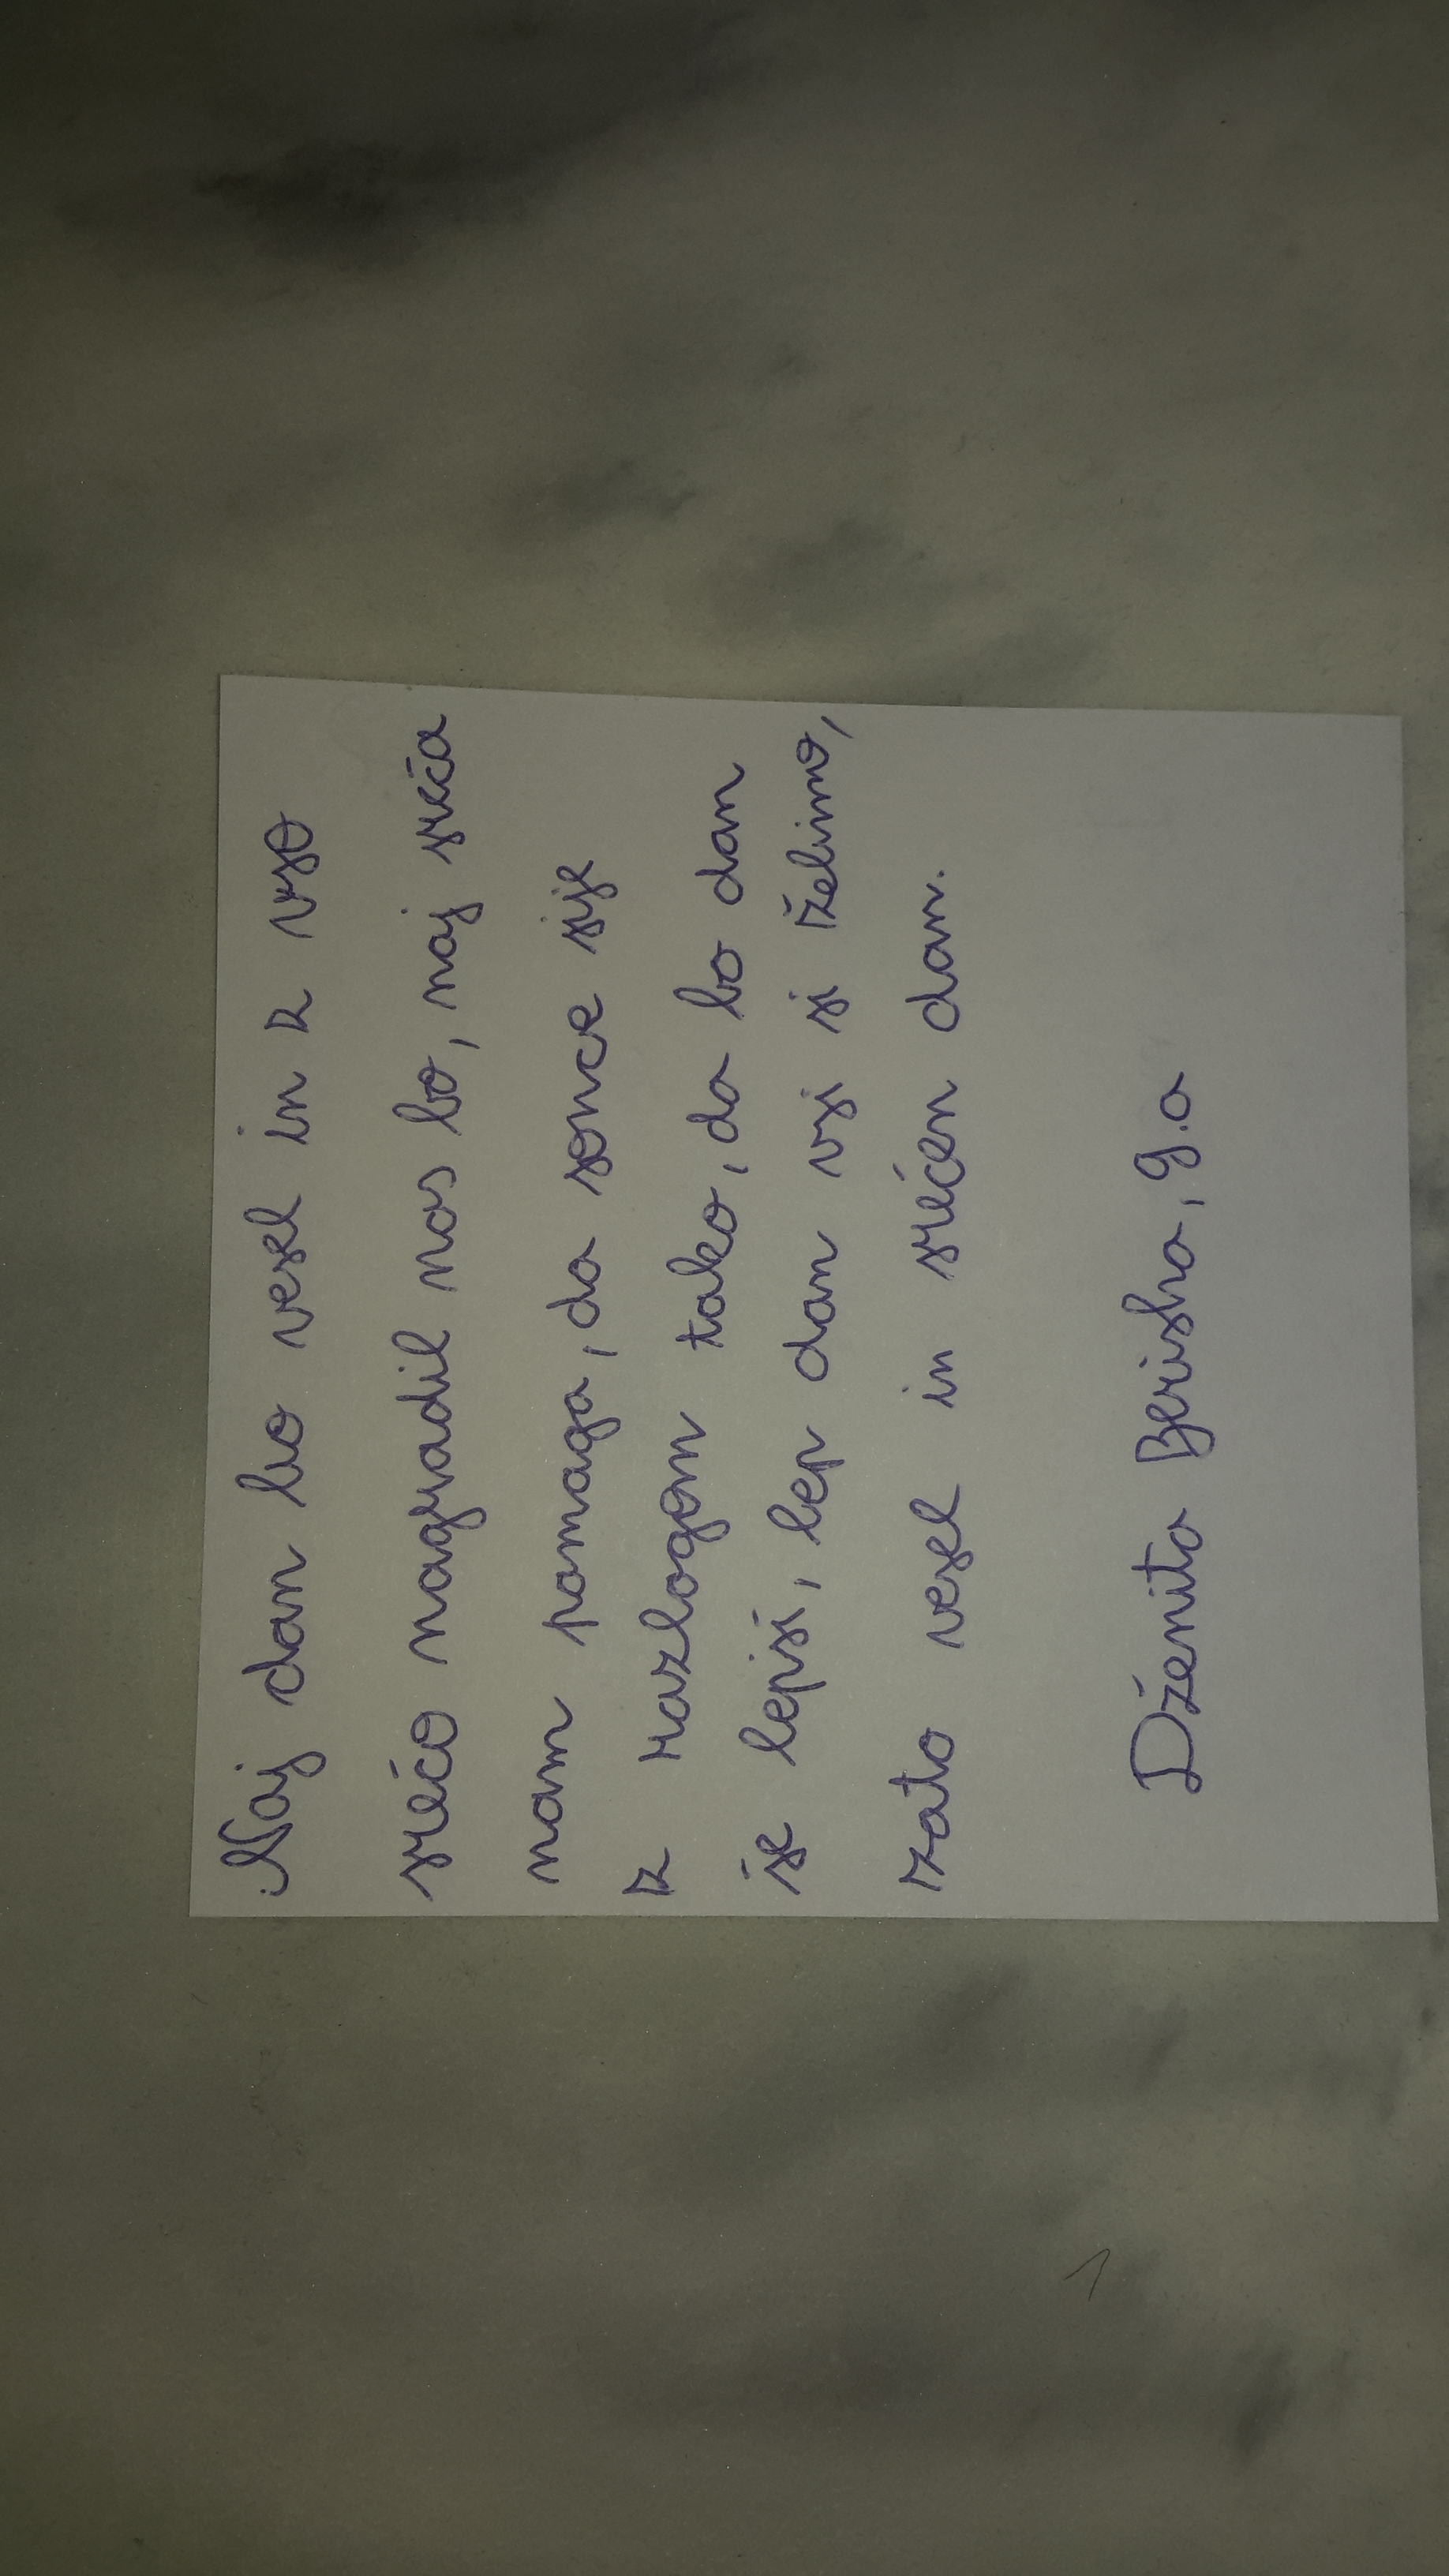 Naj dan bo vesel in z vso
srečo nagradil nas bo, naj sreča
nam pomaga, da sonce sije
z razlogom tako, da bo dan
še lepši, lep dan vsi si želimo,
zato vesel in srečen dan.
Dženita Berisha, 9.a